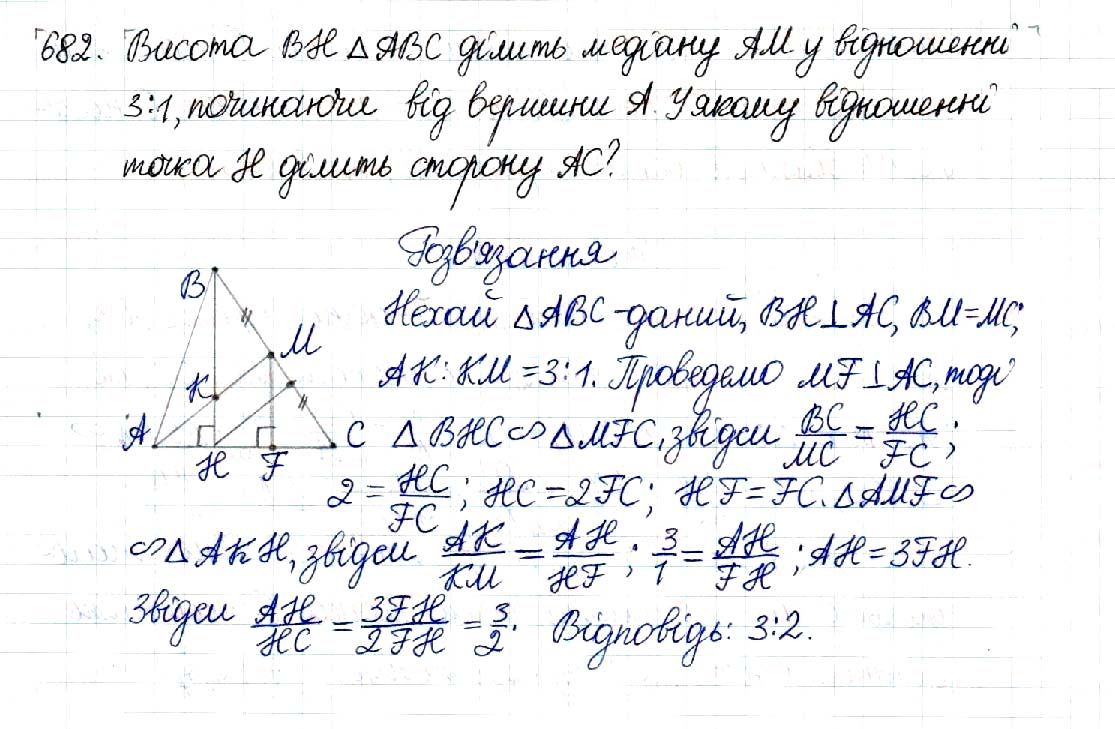 682. Висота BH △ABC ділить медіану AM у відношенні
3:1, починаючи від вершини A. У якому відношенні
точка H ділить сторону AC?
Розв'язання
B
M
K
A
H
F
C
Нехай △ABC - даний, BH⊥AC, BM=MC;
AK:KM=3:1. Проведемо MF⊥AC, тоді
△BHC∽△MFC, звідси BC/MC = HC/FC;
2 = HC/FC; HC=2FC; HF=FC. △AMF∽
∽△AKH, звідси AK/KM = AH/HF; 3/1 = AH/FH; AH=3FH.
Звідси AH/HC = 3FH/2FH = 3/2. Відповідь: 3:2.